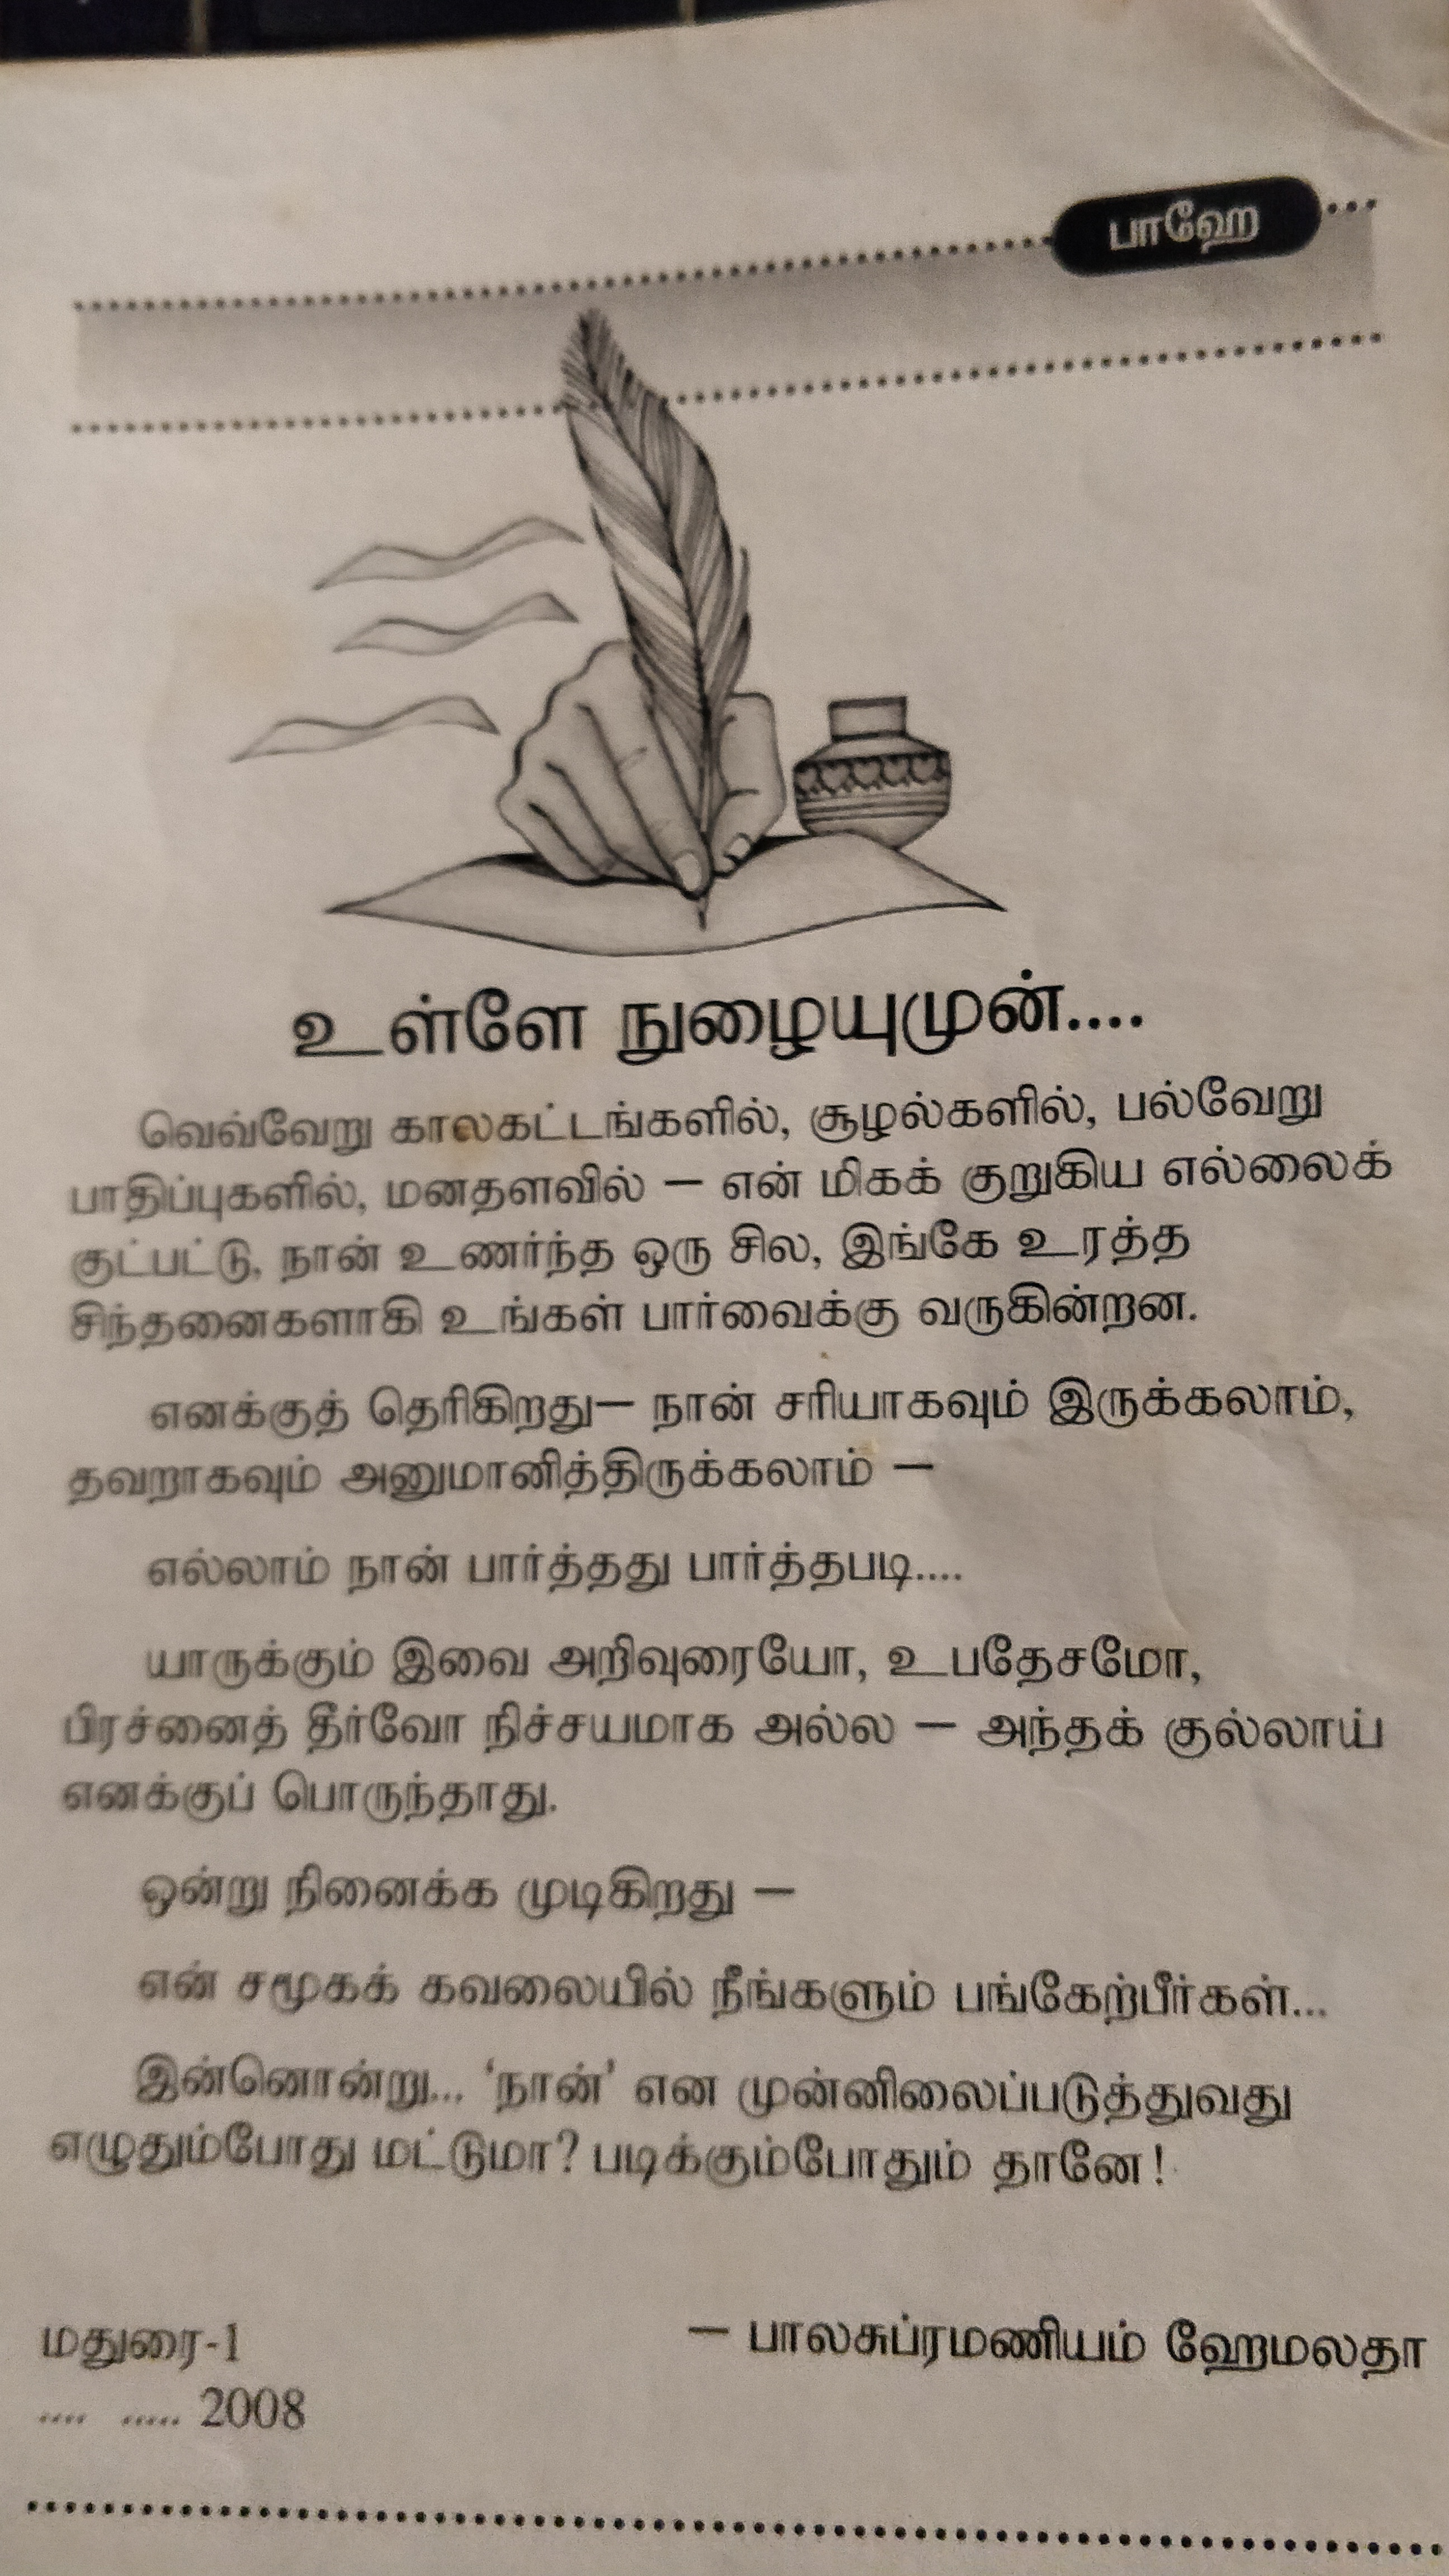 பாஹே
உள்ளே நுழையுமுன்....
வெவ்வேறு காலகட்டங்களில், சூழல்களில், பல்வேறு
பாதிப்புகளில், மனதளவில் – என் மிகக் குறுகிய எல்லைக்
குட்பட்டு, நான் உணர்ந்த ஒரு சில, இங்கே உரத்த
சிந்தனைகளாகி உங்கள் பார்வைக்கு வருகின்றன.
எனக்குத் தெரிகிறது– நான் சரியாகவும் இருக்கலாம்,
தவறாகவும் அனுமானித்திருக்கலாம் –
எல்லாம் நான் பார்த்தது பார்த்தபடி....
யாருக்கும் இவை அறிவுரையோ, உபதேசமோ,
பிரச்னைத் தீர்வோ நிச்சயமாக அல்ல – அந்தக் குல்லாய்
எனக்குப் பொருந்தாது.
ஒன்று நினைக்க முடிகிறது –
என் சமூகக் கவலையில் நீங்களும் பங்கேற்பீர்கள்...
இன்னொன்று... ‘நான்’ என முன்னிலைப்படுத்துவது
எழுதும்போது மட்டுமா? படிக்கும்போதும் தானே!
மதுரை-1
– பாலசுப்ரமணியம் ஹேமலதா
.... ..... 2008